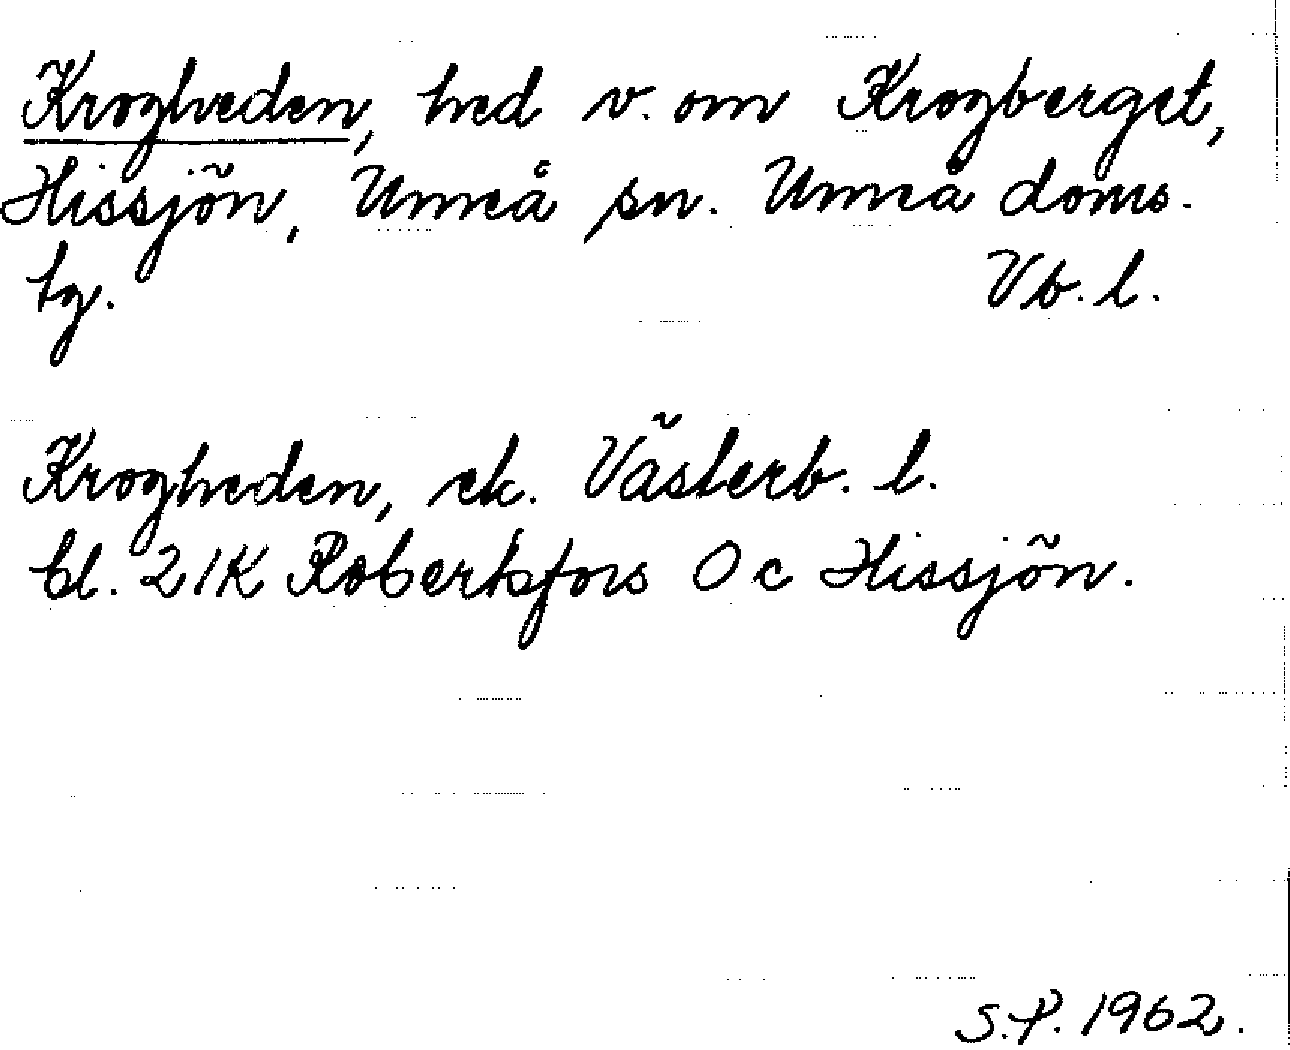 Krogheden, hed v. om Krogberget,
Hissjön, Umeå sn. Umeå doms.
hg. Vb. l.
Krogheden, ek. Västerb. l.
bl. 21K Robertsfors O c Hissjön.
S.P. 1962.